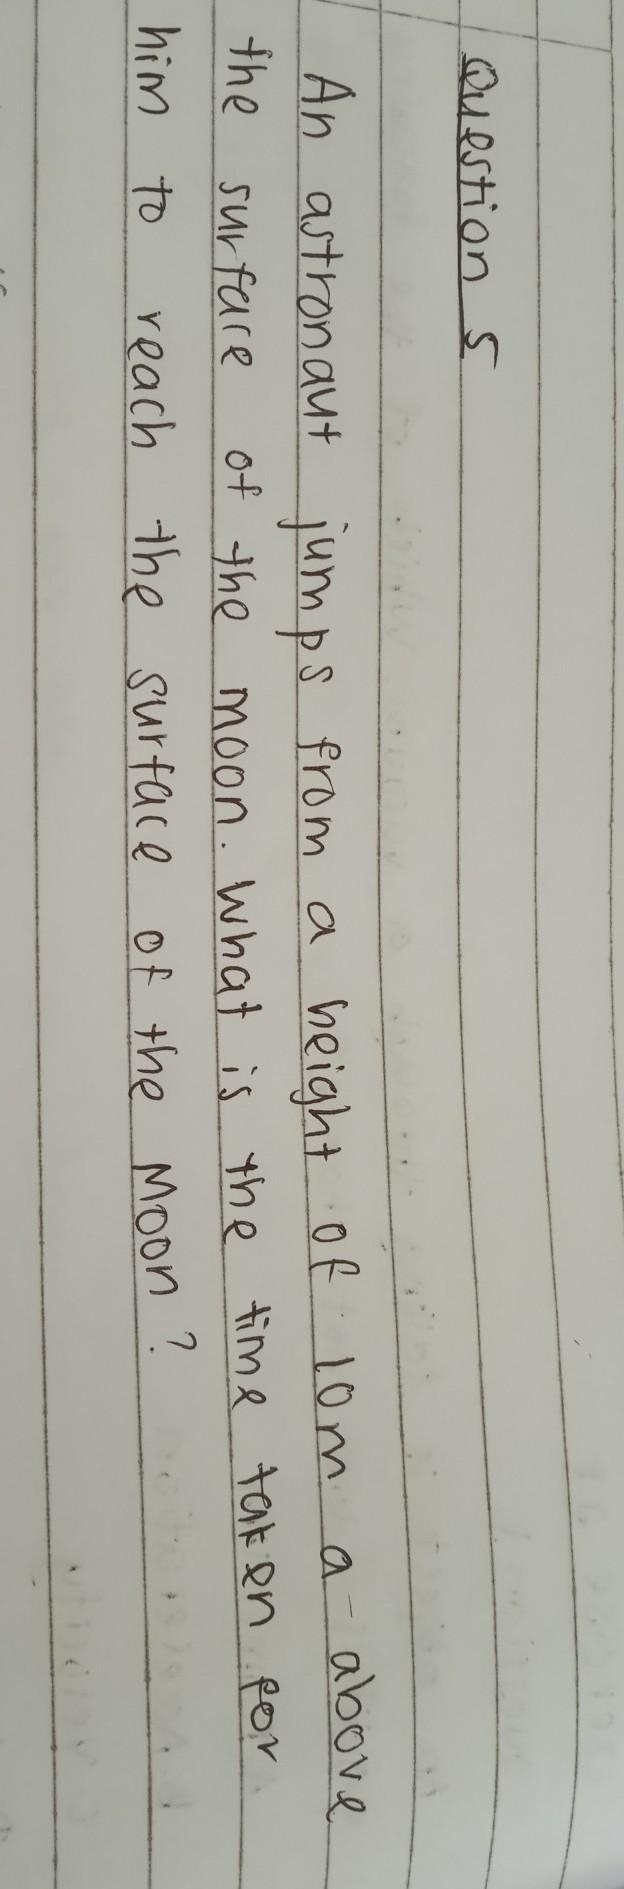 Question 5
An astronaut jumps from a height of 10m a above
the surface of the moon. What is the time taken for
him to reach the surface of the Moon?